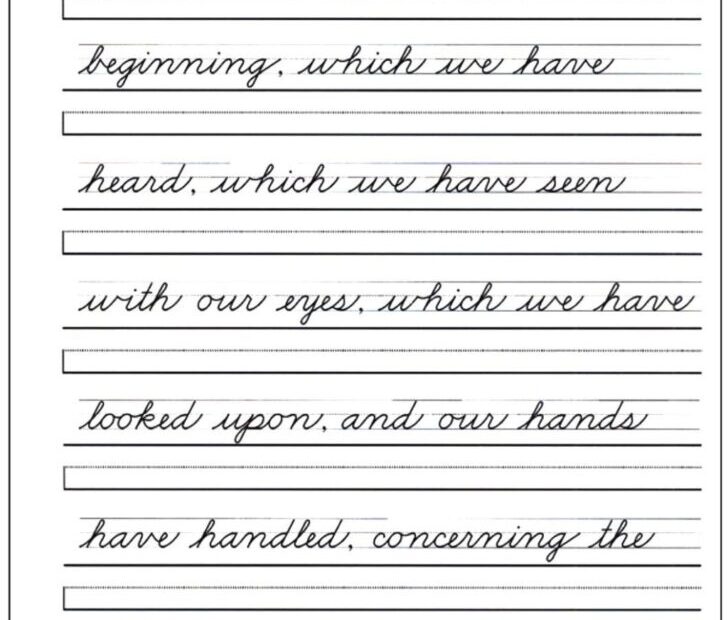 beginning, which we have
heard, which we have seen
with our eyes, which we have
looked upon, and our hands
have handled, concerning the